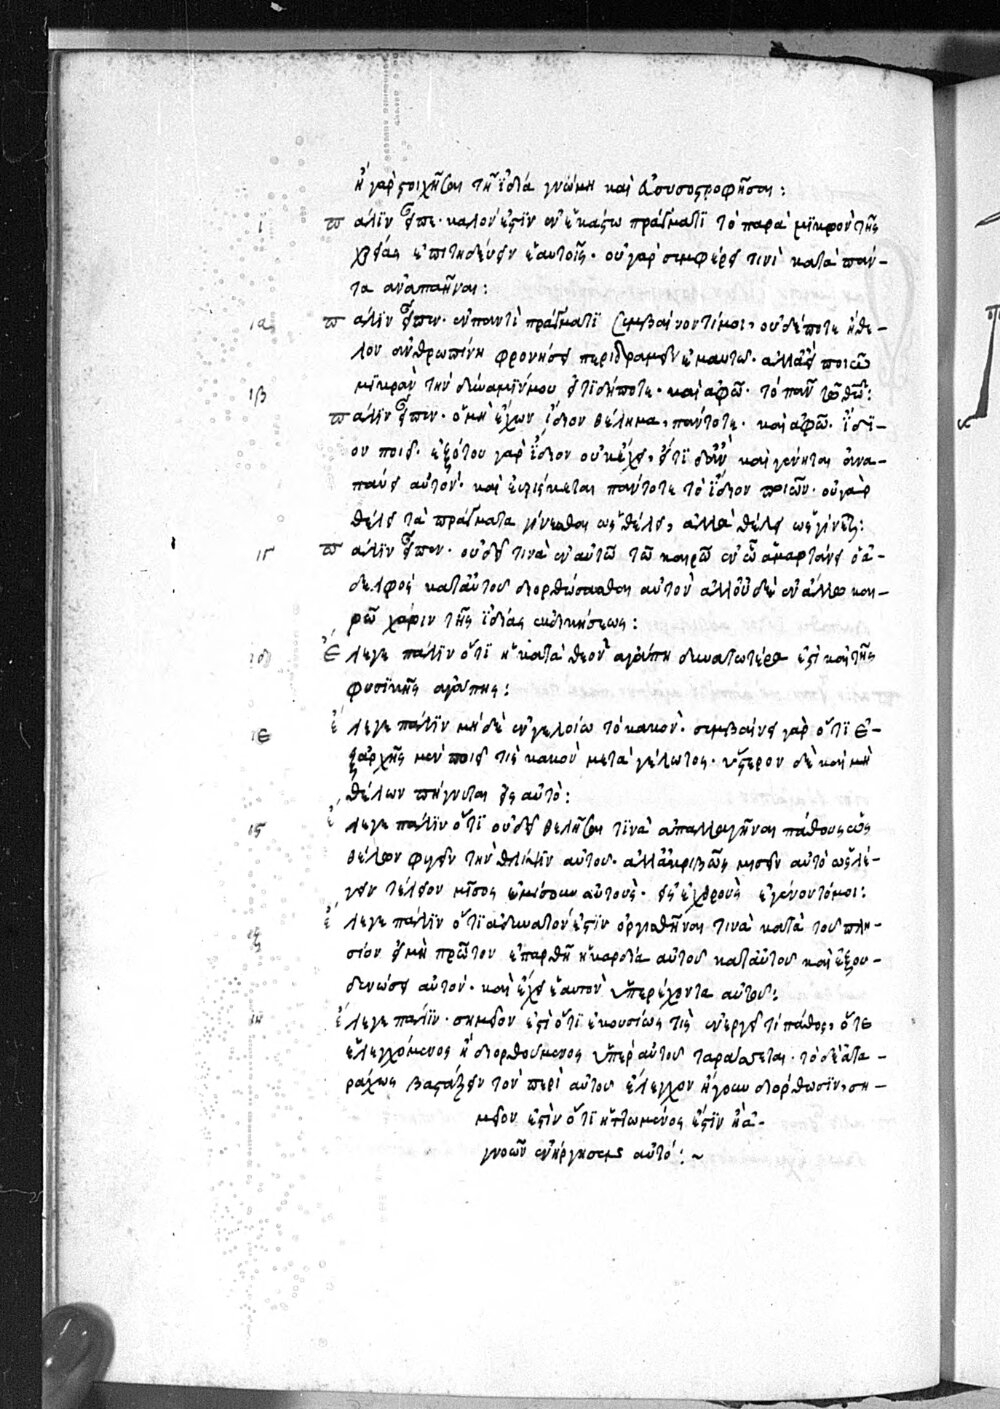 ἢ γὰρ στοιχῆσαι τῇ ἰδία γνώμη καὶ
ι πάλιν εἶπε· καλόν ἐστιν ἐν ἑκάστω πράγματι τὸ παρὰ μικρὸν τῆς
χρείας ἐπιτηδεύειν ἑαυτοῖς· οὐ γὰρ συμφέρει τινὶ κατὰ πάν-
τα ἀναπαῆναι:
ια πάλιν εἶπεν· ἐν παντὶ πράγματι συμβαίνοντί μοι, οὐδέποτε ἤθε-
λον ἀνθρωπίνη φρονήσει περιδραμεῖν ἐμαυτῶ· ἀλλὰ ποιῶ
μικρὰν τὴν δύναμίν μου εἴ τι δήποτε· καὶ ἀφῶ· τὸ πᾶν τῶ θῶ:
ιβ πάλιν εἶπεν· ὁ μὴ ἔχων ἴδιον θέλημα, πάντοτε· καὶ ἀφῶ· ἴδι-
ον ποιεῖ· ἐξότου γὰρ ἴδιον οὐκ ἔχει, εἴ τι δἂν καὶ γένηται ἀνα-
παύει αὐτόν· καὶ εὑρίσκεται πάντοτε τὸ ἴδιον ποιῶν· οὐ γὰρ
θέλει τὰ πράγματα γίνεσθαι ὡς θέλει, ἀλλὰ θέλει ὡς γίνεται:
ιγ πάλιν εἶπεν· οὐ δεῖ τινὰ ἐν αὐτῶ τῶ καιρῶ ἐν ὧ ἁμαρτάνει ὁ ἀ-
δελφὸς κατ' αὐτοῦ διορθώσασθαι αὐτὸν ἀλλ' οὐδὲ ἐν ἄλλω και-
ρῶ χάριν τῆς ἰδίας ἐκδικήσεως:
ιδ ἔλεγε πάλιν ὅτι ἡ κατὰ θεὸν ἀγάπη δυνατωτέρα ἐστὶ καὶ τῆς
φυσικῆς ἀγάπης:
ιε ἔλεγε πάλιν μηδὲ ἐν γελοίω τὸ κακὸν· συμβαίνει γὰρ ὅτι ἐ-
ξαρχῆς μὲν ποιεῖ τις κακὸν μετὰ γέλωτος· ὕστερον δὲ καὶ μὴ
θέλων πήγνυται εἰς αὐτό:
ις ἔλεγε πάλιν ὅτι οὐ δεῖ θελῆσαι τινὰ ἀπαλλαγῆναι πάθους ὡς
θέλων φυγεῖν τὴν θλίψιν αὐτοῦ· ἀλλ' ἀκριβῶς μισεῖν αὐτὸ ὡς λέ-
γειν τέλειον μῖσος ἐμίσουν αὐτοὺς· εἰς ἐχθροὺς ἐγένοντό μοι:
ιζ ἔλεγε πάλιν ὅτι ἀδύνατόν ἐστιν ὀργισθῆναι τινὰ κατὰ τοῦ πλη-
σίον εἰ μὴ πρῶτον ἐπαρθῆ ἡ καρδία αὐτοῦ κατ' αὐτοῦ καὶ ἐξου-
δενώσει αὐτόν· καὶ ἔχει ἑαυτὸν ὑπερέχοντα αὐτοῦ:
ιη ἔλεγε πάλιν· σημεῖον ἐστὶ ὅτι ἑκουσίως τις ἐνεργεῖ τι πάθος, ὅτε
ἐλεγχόμενος ἢ διορθούμενος ὑπὲρ αὐτοῦ ταράσσεται· τὸ δὲ ἀτα-
ράχως βαστάζειν τὸν περὶ αὐτοῦ ἔλεγχον ἤγουν διόρθωσιν, ση-
μεῖον ἐστὶν ὅτι ἡττώμενός ἐστιν ἢ ἀ-
γνοῶν ἐνήργησεν αὐτό:~